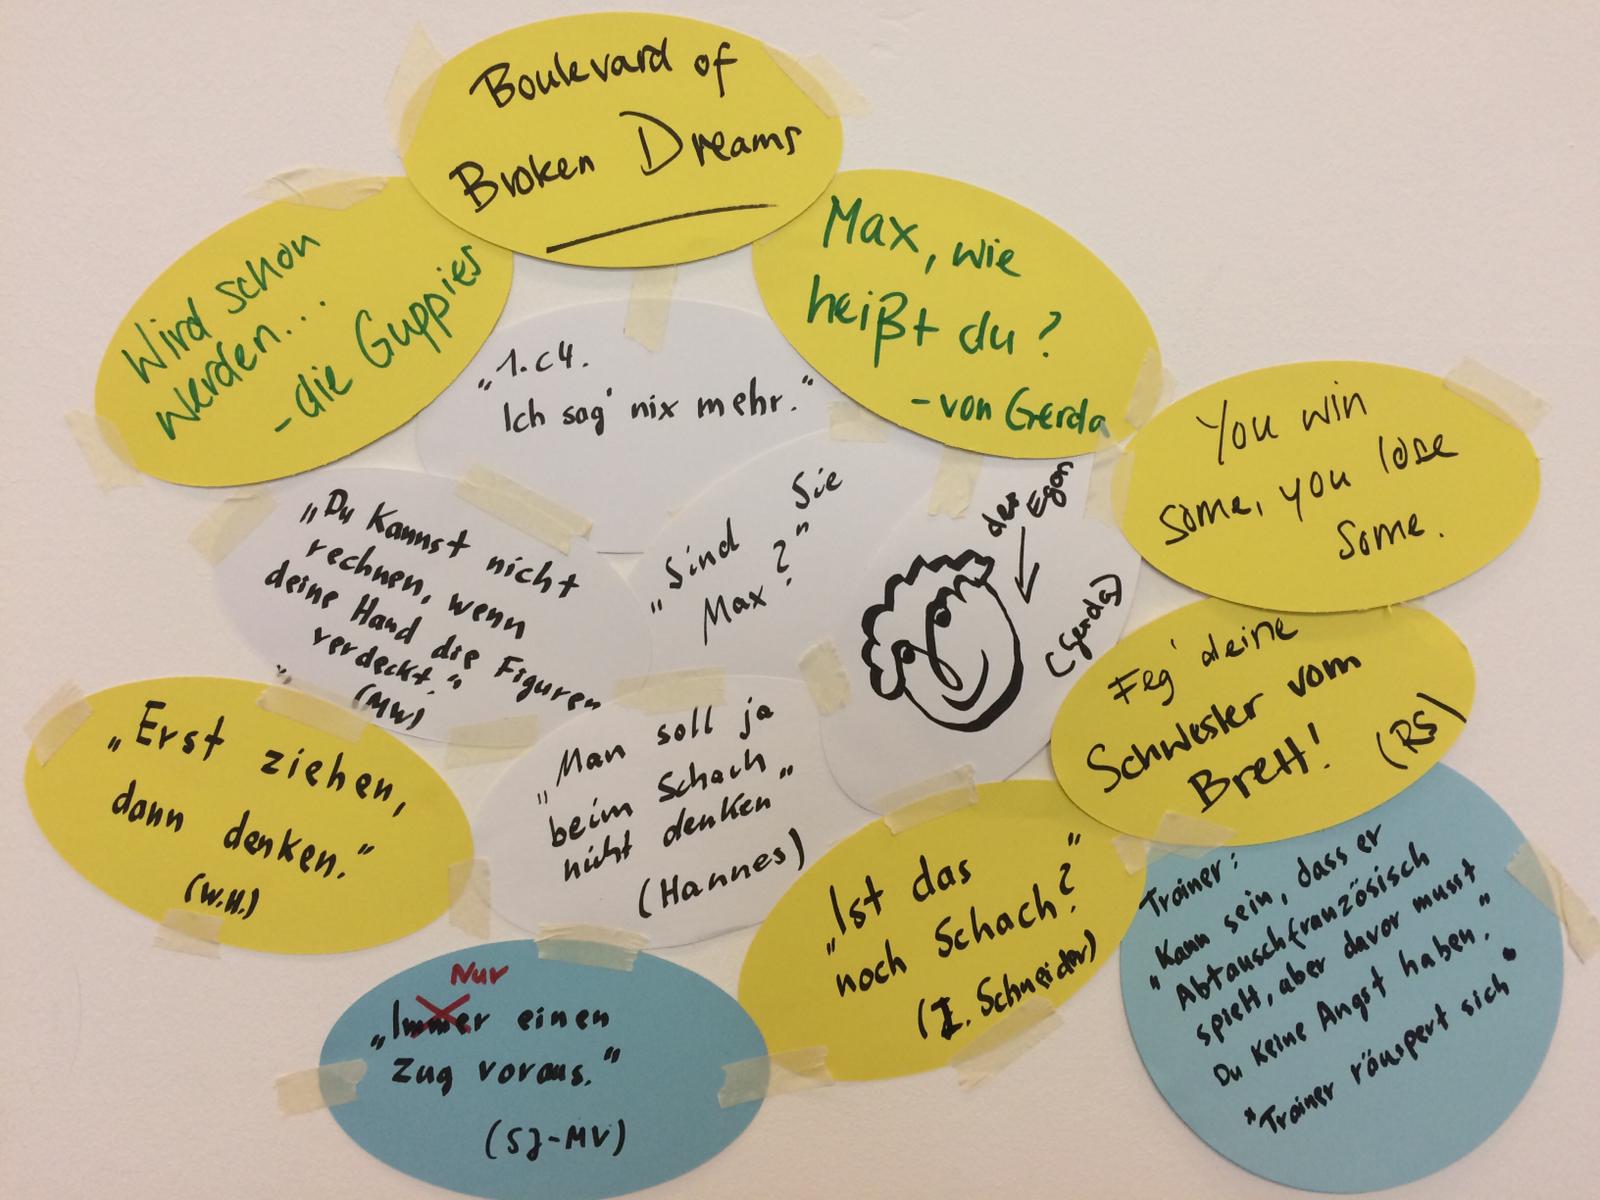 Boulevard of
Broken Dreams
Wird schon
werden...
- die Guppies
Max, wie
heißt du?
- von Gerda
„1.c4.
Ich sag' nix mehr."
You win
some, you lose
some.
„Du kannst nicht
rechnen, wenn
deine Hand die Figuren
verdeckt."
(MW)
„Sind Sie
Max?"
der
Egon
(Gerda)
Feg' deine
Schwester vom
Brett!
(RS)
„Erst ziehen,
dann denken."
(W.H.)
„Man soll ja
beim Schach
nicht denken"
(Hannes)
„Ist das
noch Schach?"
(I. Schneider)
Trainer:
„Kann sein, dass er
Abtauschfranzösisch
spielt, aber davor musst
Du keine Angst haben."
*Trainer räuspert sich*
Nur
„Immer einen
Zug voraus."
(SJ-MV)